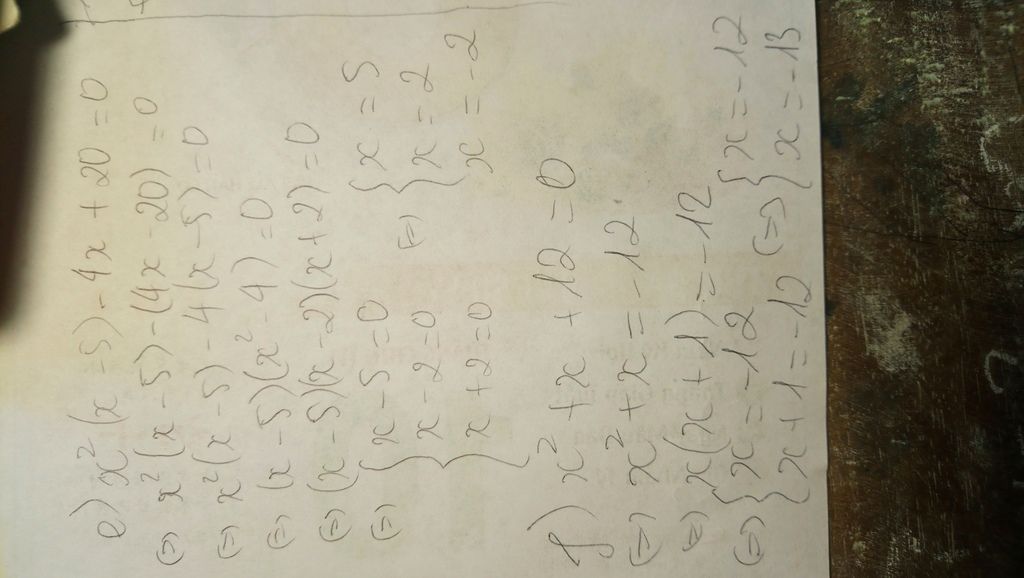 e) x²(x-5)-4x+20=0
(=) x²(x-5)-(4x-20)=0
(=) x²(x-5)-4(x-5)=0
(=) (x-5)(x²-4)=0
(=) (x-5)(x-2)(x+2)=0
(=) { x-5=0 (=) { x=5
x-2=0 x=2
x+2=0 x=-2
f) x²+x+12=0
(=) x²+x=-12
(=) x(x+1)=-12
(=) { x=-12 (=) { x=-12
x+1=-12 x=-13